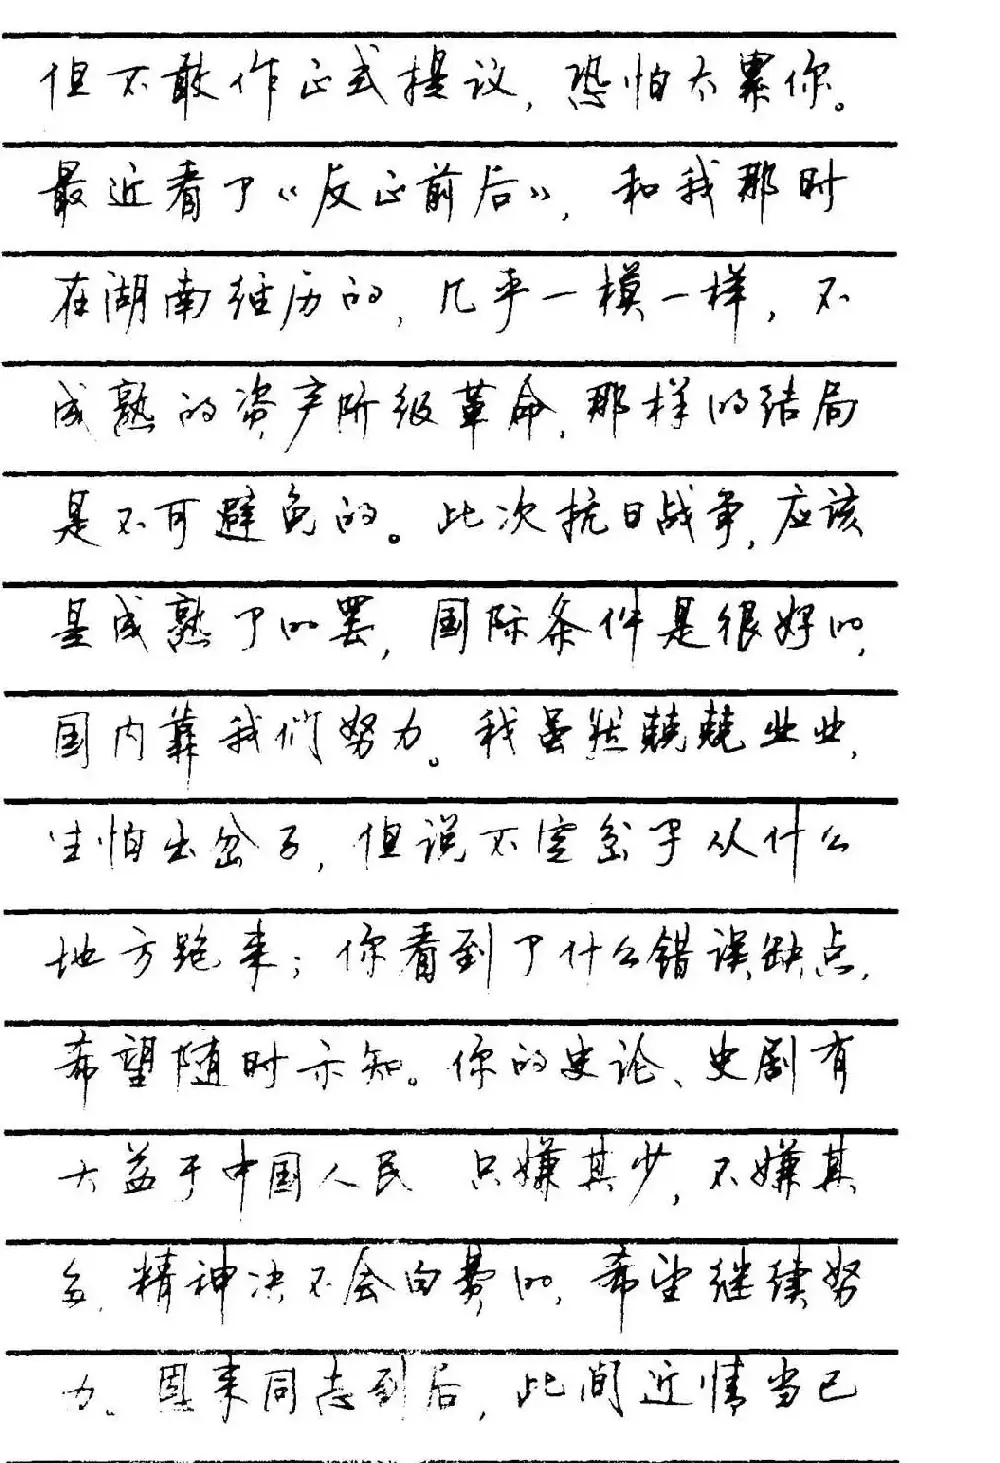 但不敢作正式提议，恐怕太累你。
最近看了《反正前后》，和我那时
在湖南经历的，几乎一模一样，不
成熟的资产阶级革命，那样的结局
是不可避免的。此次抗日战争，应该
是成熟了的罢，国际条件是很好的，
国内靠我们努力。我虽然兢兢业业，
生怕出岔子，但说不定岔子从什么
地方跑来；你看到了什么错误缺点，
希望随时示知。你的史论、史剧有
大益于中国人民 只嫌其少，不嫌其
多，精神决不会白费的，希望继续努
力。恩来同志到后，此间近情当已